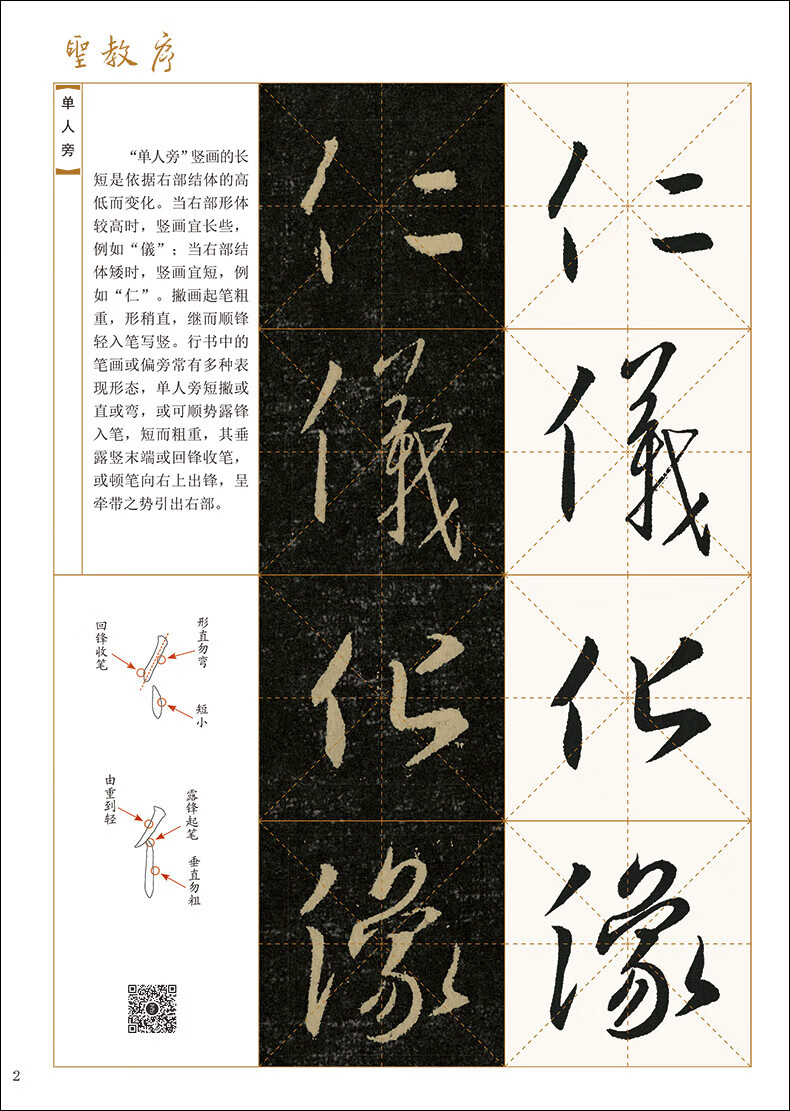 聖教序
单人旁
“单人旁”竖画的长
短是依据右部结体的高
低而变化。当右部形体
较高时，竖画宜长些，
例如“儀”；当右部结
体矮时，竖画宜短，例
如“仁”。撇画起笔粗
重，形稍直，继而顺锋
轻入笔写竖。行书中的
笔画或偏旁常有多种表
现形态，单人旁短撇或
直或弯，或可顺势露锋
入笔，短而粗重，其垂
露竖末端或回锋收笔，
或顿笔向右上出锋，呈
牵带之势引出右部。
回锋收笔
形直勿弯
短小
由重到轻
露锋起笔
垂直勿粗
仁
仁
儀
儀
化
化
像
像
2